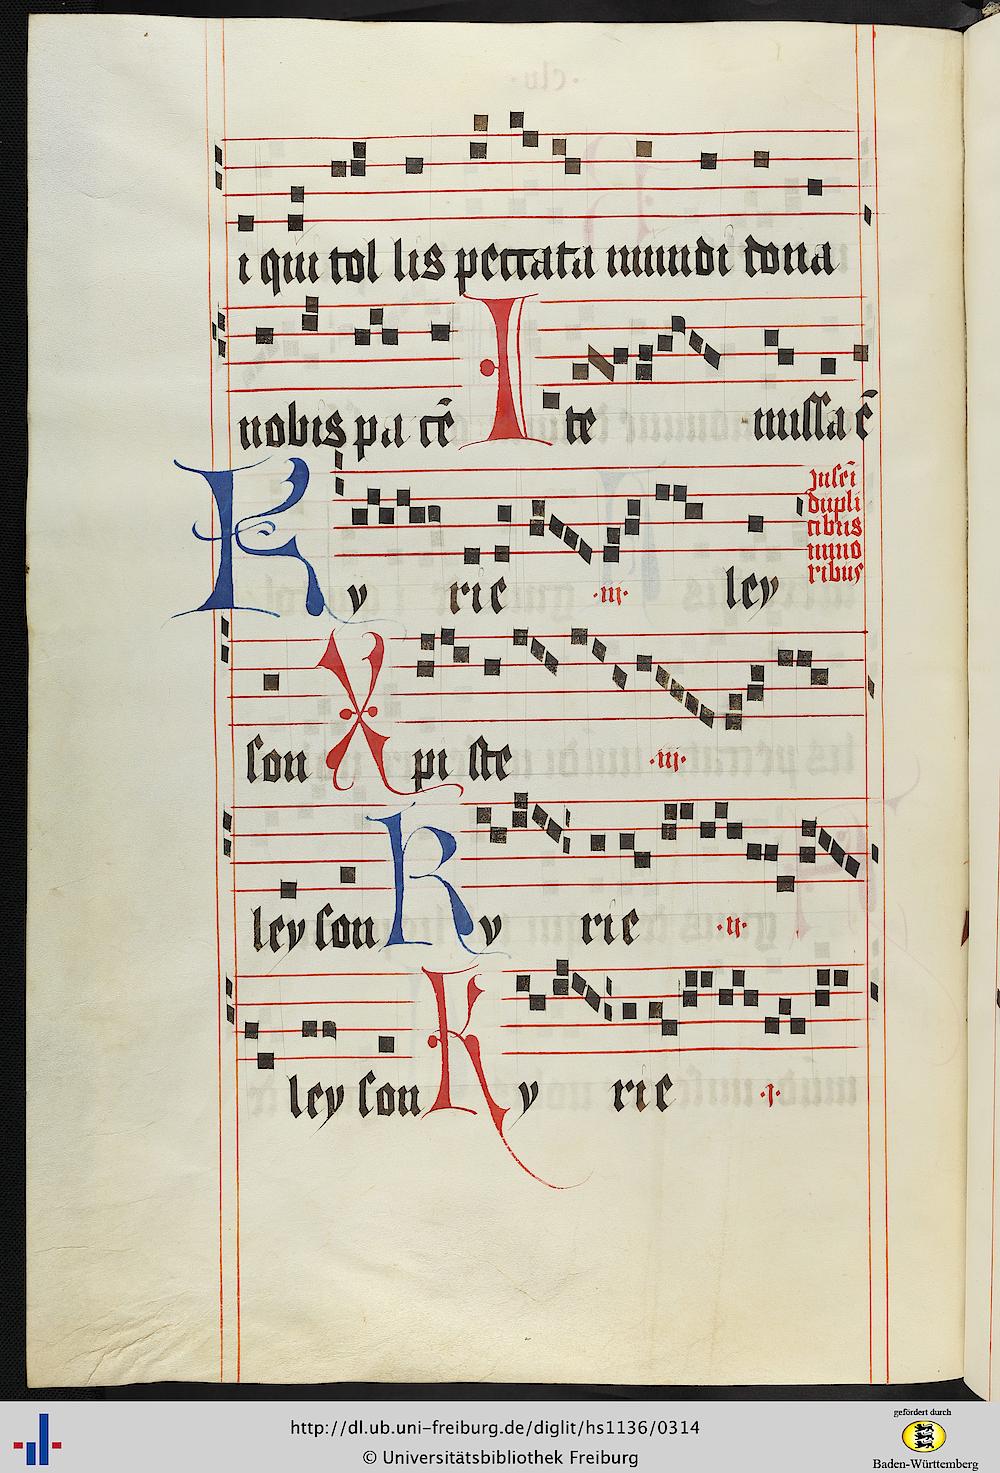 i qui tol lis peccata mundi dona
nobis pa cē Ite missa ē
Ky rie ·iij· ley
Jn sēi
dupli
cibus
mino
ribus
son Xpi ste ·iij·
ley son Ky rie ·ij·
ley son Ky rie ·j·
http://dl.ub.uni-freiburg.de/diglit/hs1136/0314
© Universitätsbibliothek Freiburg
gefördert durch
Baden-Württemberg